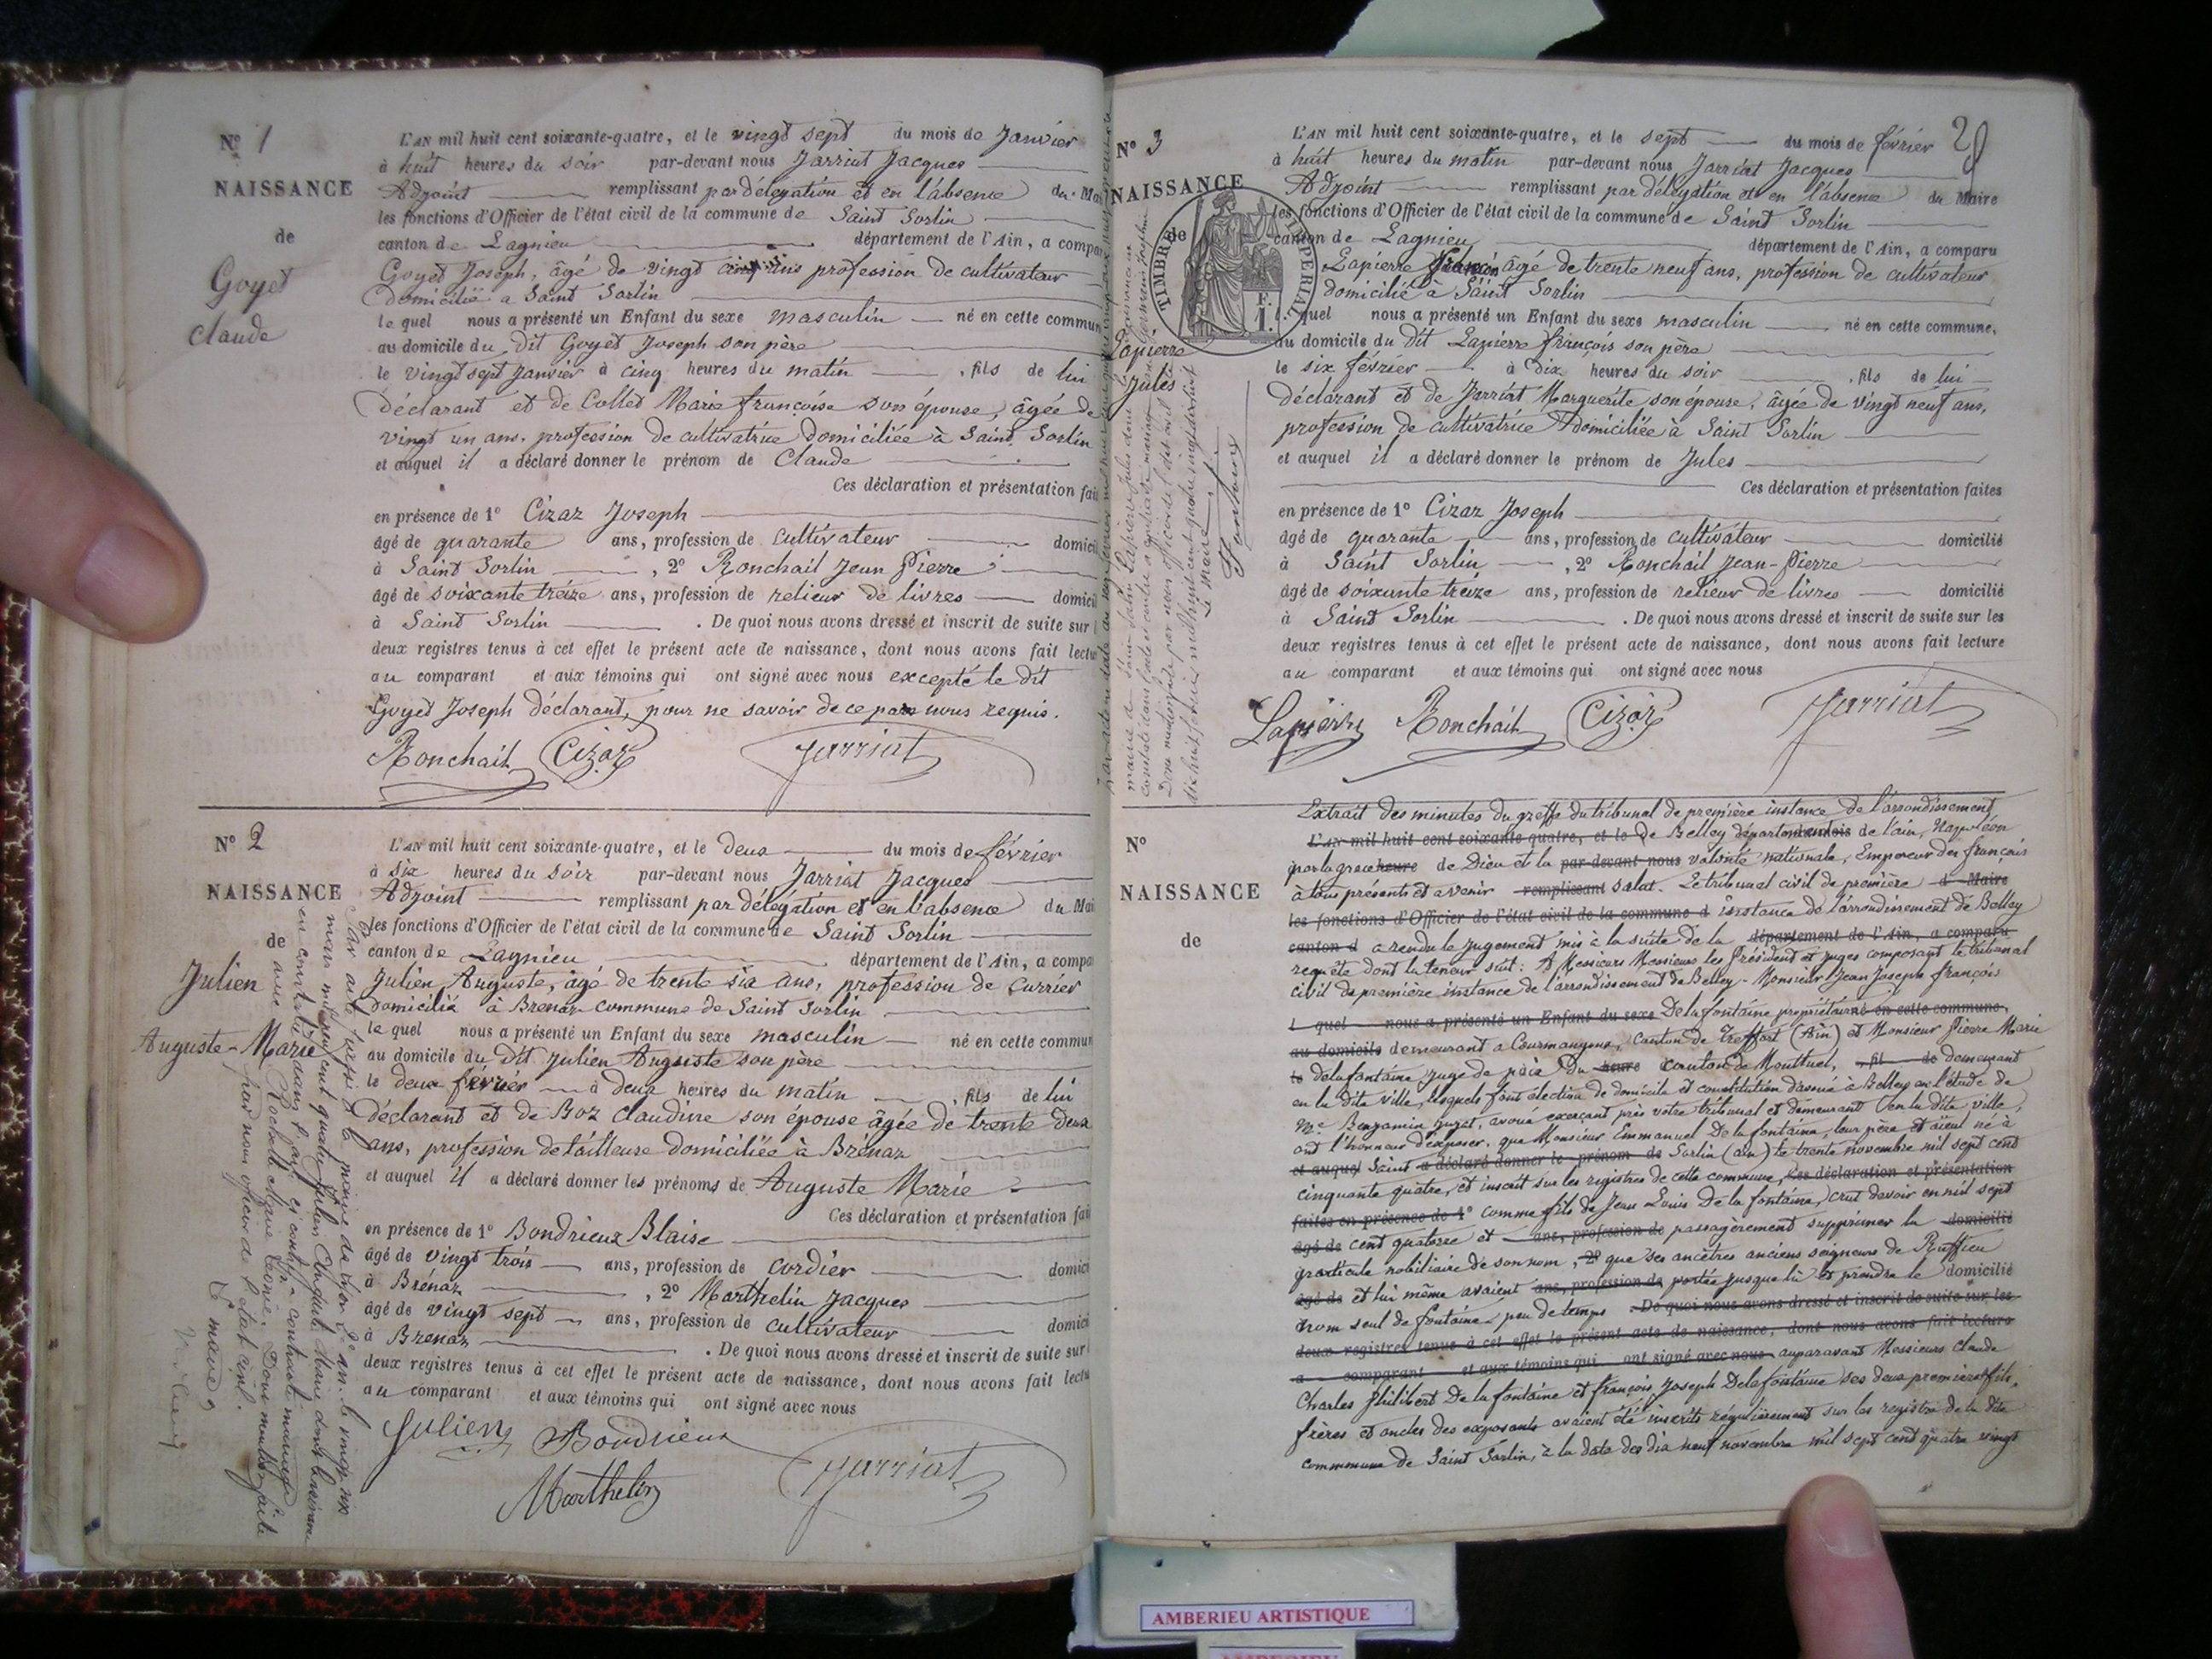 N° 1
NAISSANCE
de
Goyet
Claude
L'AN mil huit cent soixante-quatre, et le vingt sept du mois de Janvier
à huit heures du soir par-devant nous Jarriat Jacques
Adjoint remplissant par délégation et en l'absence du Mai
les fonctions d'Officier de l'état civil de la commune de Saint Sorlin
canton de Lagnieu département de l'Ain, a compar
Goyet Joseph, âgé de vingt cinq ans profession de cultivateur
Domicilié a Saint Sorlin
le quel nous a présenté un Enfant du sexe masculin né en cette commun
au domicile du dit Goyet Joseph son père
le vingt sept Janvier à cinq heures du matin , fils de lui
Déclarant et de Collet Marie françoise son épouse, âgée de
vingt un ans, profession de cultivatrice Domiciliée à Saint Sorlin
et auquel il a déclaré donner le prénom de Claude
Ces déclaration et présentation fai
en présence de 1° Cizaz Joseph
âgé de quarante ans, profession de cultivateur domici
à Saint Sorlin , 2° Ronchail Jean Pierre
âgé de soixante treize ans, profession de relieur de livres domici
à Saint Sorlin . De quoi nous avons dressé et inscrit de suite sur
deux registres tenus à cet effet le présent acte de naissance, dont nous avons fait lectu
au comparant et aux témoins qui ont signé avec nous excepté le dit
Goyet Joseph déclarant, pour ne savoir de ce par nous requis.
Ronchail Cizaz Jarriat
N° 2
NAISSANCE
de
Julien
Auguste-Marie
L'AN mil huit cent soixante-quatre, et le deux du mois de février
à six heures du soir par-devant nous Jarriat Jacques
Adjoint remplissant par délégation et en l'absence du Mai
les fonctions d'Officier de l'état civil de la commune de Saint Sorlin
canton de Lagnieu département de l'Ain, a compa
Julien Auguste, âgé de trente six ans, profession de currier
Domicilié à Brenaz commune de Saint Sorlin
le quel nous a présenté un Enfant du sexe masculin né en cette commun
au domicile du dit Julien Auguste son père
le deux février à deux heures du matin , fils de lui
Déclarant et de Boz Claudine son épouse âgée de trente deux
ans, profession de tailleuse domiciliée à Brénaz
et auquel il a déclaré donner les prénoms de Auguste Marie
Ces déclaration et présentation fai
en présence de 1° Bondrieux Blaise
âgé de vingt trois ans, profession de cordier domici
à Brénaz , 2° Marthelin Jacques
âgé de vingt sept ans, profession de cultivateur domici
à Brenaz . De quoi nous avons dressé et inscrit de suite sur
deux registres tenus à cet effet le présent acte de naissance, dont nous avons fait lectu
au comparant et aux témoins qui ont signé avec nous
Julien Bondrieux
Marthelin Jarriat
N° 3
NAISSANCE
de
Lapierre
Jules
TIMBRE IMPERIAL
F.
1.
29
L'AN mil huit cent soixante-quatre, et le sept du mois de février
à huit heures du matin par-devant nous Jarriat Jacques
Adjoint remplissant par délégation et en l'absence du Maire
les fonctions d'Officier de l'état civil de la commune de Saint Sorlin
canton de Lagnieu département de l'Ain, a comparu
Lapierre françois âgé de trente neuf ans, profession de cultivateur
domicilié à Saint Sorlin
quel nous a présenté un Enfant du sexe masculin né en cette commune,
au domicile du dit Lapierre françois son père
le six février à dix heures du soir , fils de lui
déclarant et de Jarriat Marguerite son épouse, âgée de vingt neuf ans,
profession de cultivatrice domiciliée à Saint Sorlin
et auquel il a déclaré donner le prénom de Jules
Ces déclaration et présentation faites
en présence de 1° Cizaz Joseph
âgé de quarante ans, profession de cultivateur domicilié
à Saint Sorlin , 2° Ronchail Jean-Pierre
âgé de soixante treize ans, profession de relieur de livres domicilié
à Saint Sorlin . De quoi nous avons dressé et inscrit de suite sur les
deux registres tenus à cet effet le présent acte de naissance, dont nous avons fait lecture
au comparant et aux témoins qui ont signé avec nous
Lapierre Ronchail Cizaz Jarriat
N°
NAISSANCE
de
Extrait des minutes du greffe du tribunal de première instance de l'arrondissement
L'AN mil huit cent soixante-quatre, et le de Belley département de l'ain, Napoléon
par la grace heure de Dieu et la par-devant nous volonté nationale, Empereur des français
à tous présents et avenir remplissant salut. Le tribunal civil de première d Maire
les fonctions d'Officier de l'état civil de la commune d instance de l'arrondissement de Belley
canton d a rendu le jugement mis à la suite de la département de l'Ain, a comparu
requête dont la teneur suit : A Messieurs Messieurs les Président et juges composant le tribunal
civil de première instance de l'arrondissement de Belley - Monsieur Jean Joseph françois
l quel nous a présenté un Enfant du sexe Delafontaine propriétaire né en cette commune,
au domicile demeurant a Courmangoux, Canton de Treffort (Ain) et Monsieur Pierre Marie
le delafontaine juge de paix du heure canton de Montluel, , fil de demeurant
en la dite ville, lesquels font élection de domicile et constitution d'avoué à Belley en l'étude de
Me Benjamin , avoué exerçant près votre tribunal et demeurant en la dite ville,
ont l'honneur d'exposer, que Monsieur Emmanuel De la fontaine, leur père et aïeul né à
et auquel Saint a déclaré donner le prénom de Sorlin (ain) le trente novembre mil sept cent
cinquante quatre, et inscrit sur les registres de cette commune, Ces déclaration et présentation
faites en présence de 1° comme fils de Jean Louis De la fontaine, crut devoir en mil sept
âgé de cent quatorze et ans, profession de passagèrement supprimer la domicilié
particule nobiliaire de son nom, 2° que ses ancêtres anciens seigneurs de Ruffieu
âgé de et lui même avaient ans, profession de portée jusque là et prendre le domicilié
nom seul de fontaine peu de temps De quoi nous avons dressé et inscrit de suite sur les
deux registres tenus à cet effet le présent acte de naissance, dont nous avons fait lecture
a comparant et aux témoins qui ont signé avec nous auparavant Messieurs Claude
Charles Philibert De la fontaine et françois Joseph Delafontaine ses deux premiers fils,
frères et oncles des exposants avaient été inscrits régulièrement sur les registres de la dite
commune de Saint Sorlin, à la date des dix neuf novembre mil sept cent quatre vingt
AMBERIEU ARTISTIQUE